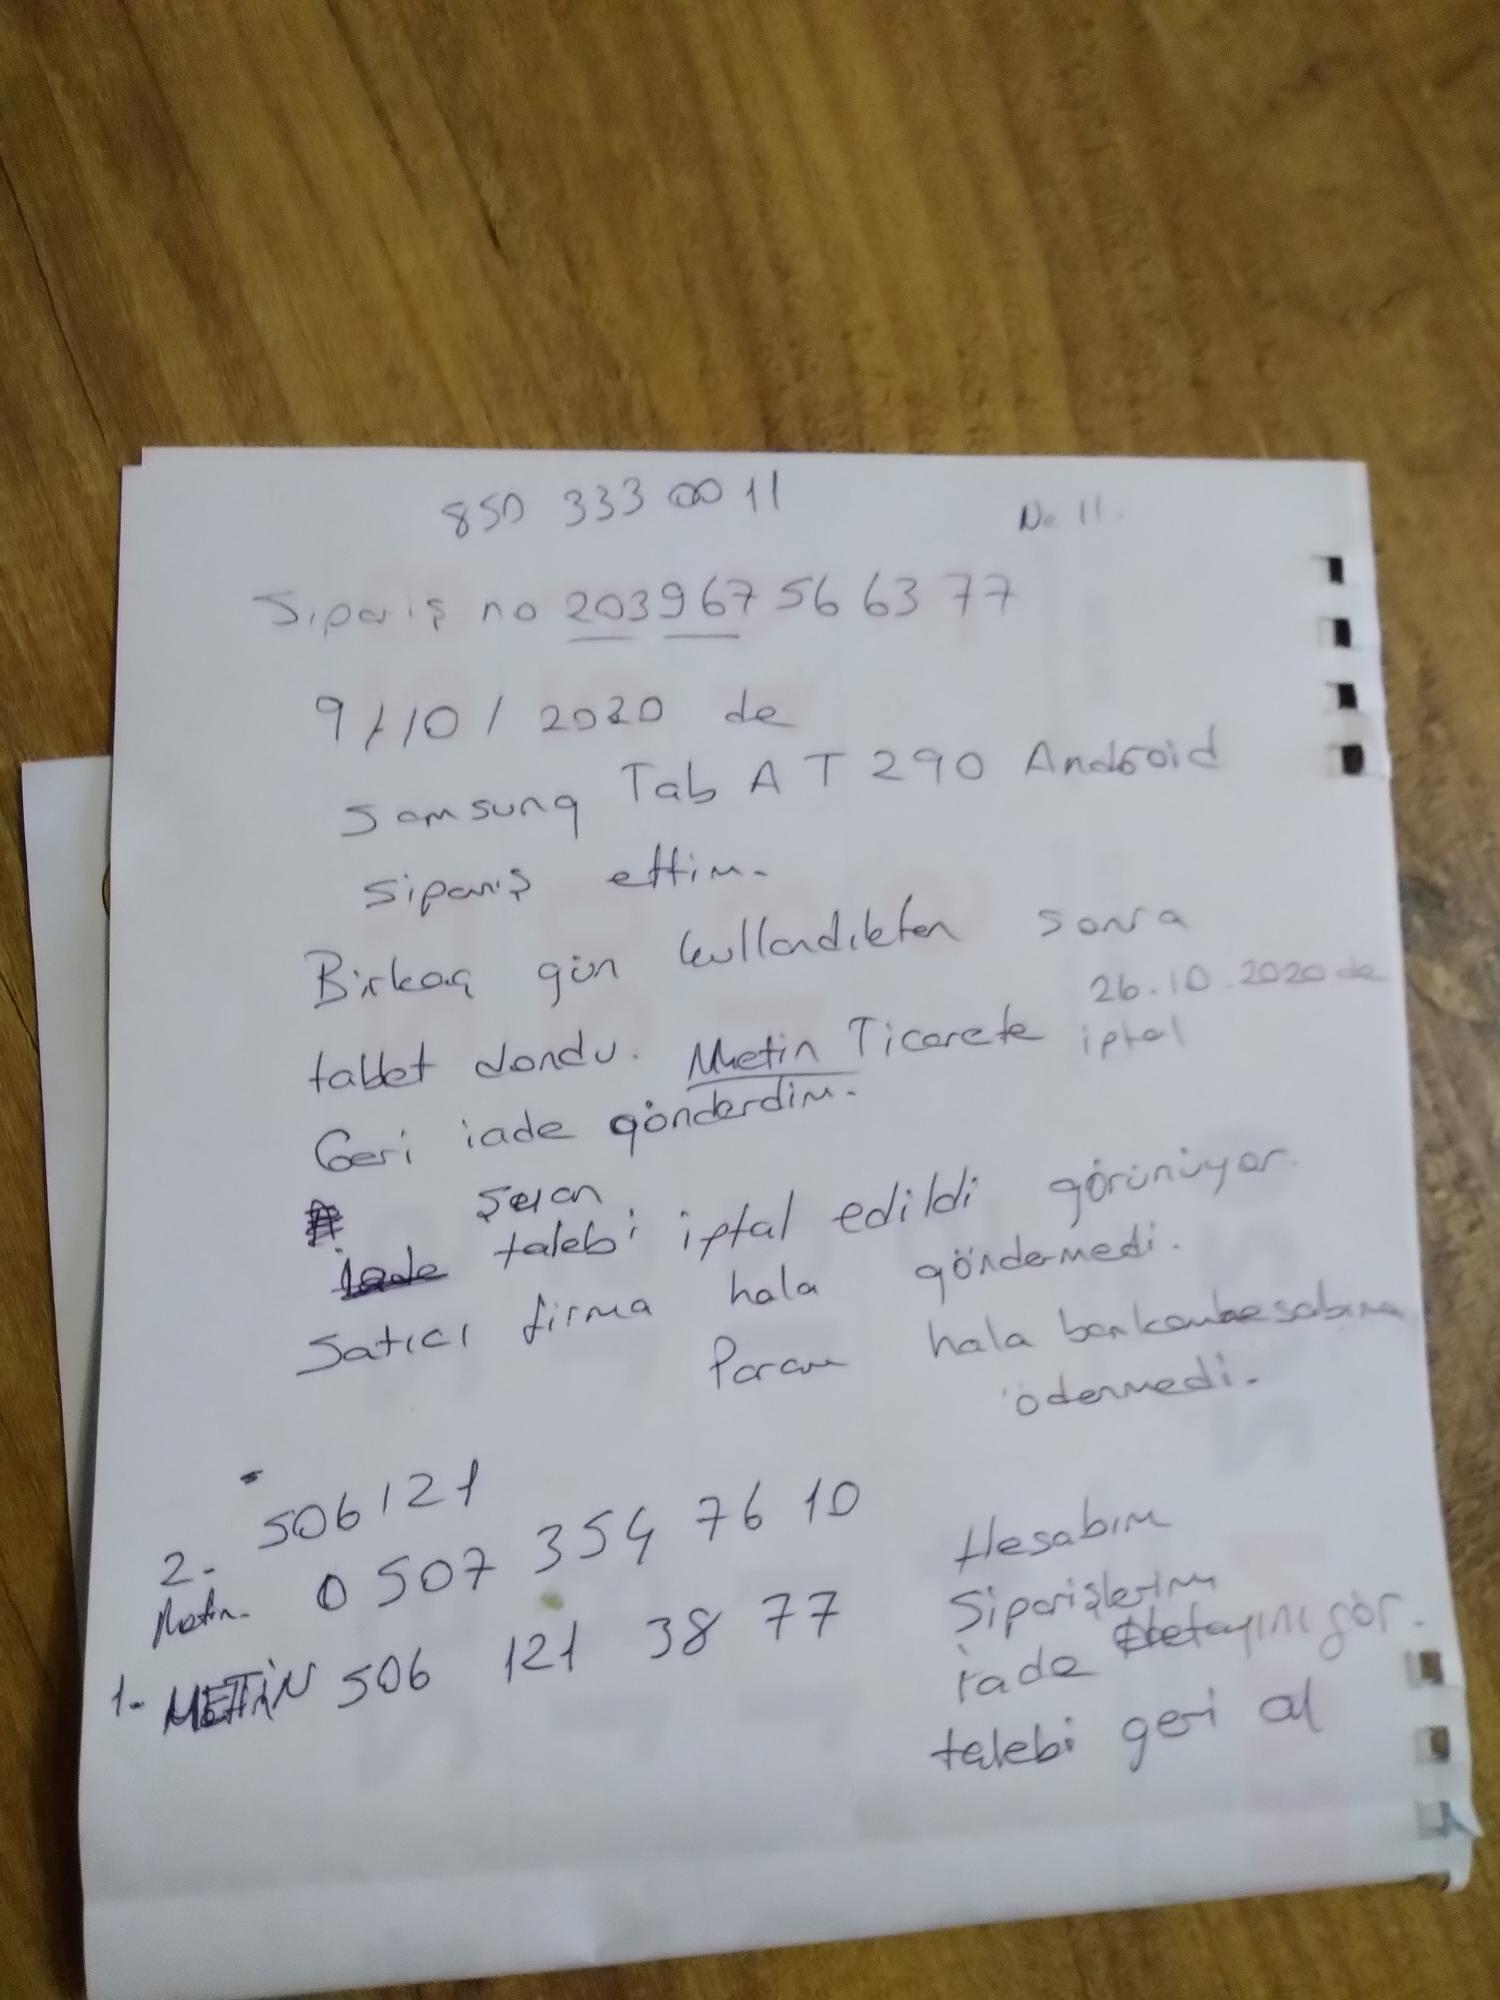 850 333 00 11
No 11.
Sipariş no 203967566377
9/10/2020 de
Samsung Tab A T290 Android
sipariş ettim.
Birkaç gün kullandıkten sonra
26.10.2020 de
tablet dondu. Metin Ticarete iptal
Geri iade gönderdim.
Şuan
İade talebi iptal edildi görünüyor.
Satıcı firma hala göndermedi.
Param hala banka hesabıma
ödenmedi.
506121
2- Metin 0 507 354 76 10
1- METİN 506 121 38 77
Hesabım
Siparişlerim
iade detayını gör.
talebi geri al